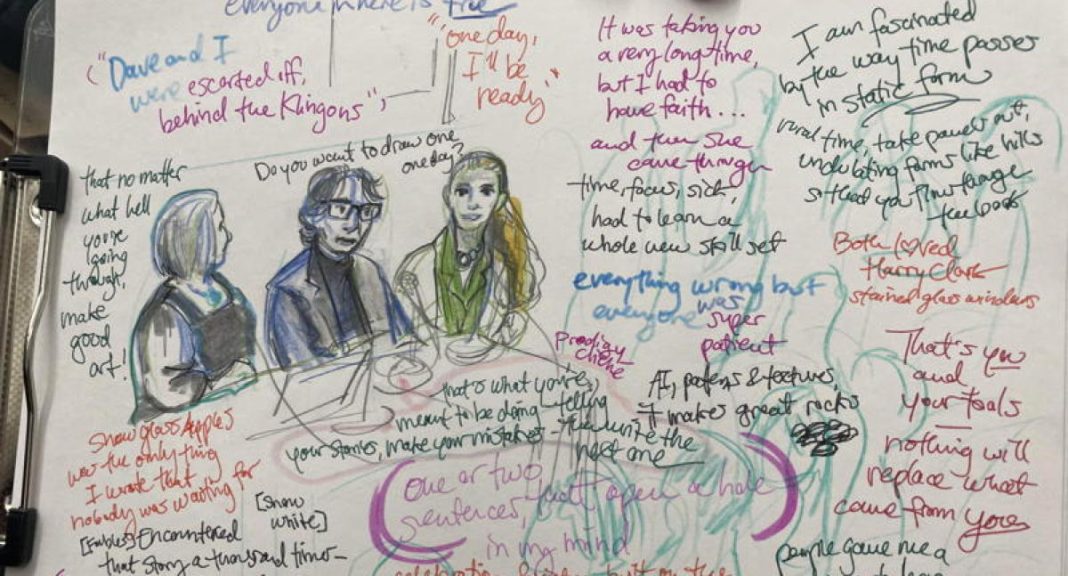 everyone in here is free
("Dave and I
were escorted off,
behind the Klingons",
"one day,
I'll be
ready"
It was taking you
a very long time,
but I had to
have faith...
and then she
came through
I am fascinated
by the way time passes
in static form
time, take panels out,
undulating forms like hills
so that you
the book
that no matter
what hell
you're
going
through,
make
good
art!
Do you want to draw one
one day?
time, focus, sick,
had to learn a
whole new skill set
Both loved
Harry Clark
stained glass windows
everything wrong but
everyone was
super
patient
Prodigy
cliche
That's you
and
your tools
nothing will
replace what
came from you
AI, patterns & textures,
it makes great rocks
that's what you're
meant to be doing - telling
your stories, make your mistakes
then write the
next one
Snow glass Apples
was the only thing
I wrote that
nobody was waiting for
[Snow
white]
[Fables] Encountered
that story a thousand times-
(one or two
sentences, just open a hole
in my mind)
people gave me a
celebration
built on the